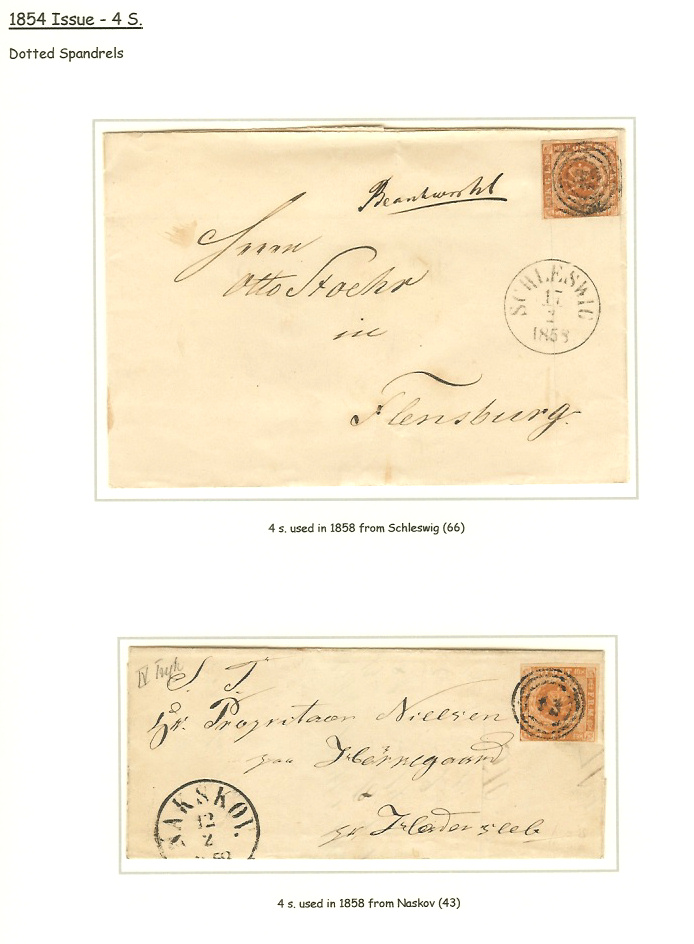 1854 Issue - 4 S.
Dotted Spandrels
Beantwortet
Herrn
Otto Stoehr
in
Flensburg.
SCHLESWIG
17
2
1858
4 s. used in 1858 from Schleswig (66)
IV Tryk
S. T.
Hr. Propritaer Nielsen
paa
pr. Hadersleb
NAKSKOV.
12
2
4 s. used in 1858 from Naskov (43)